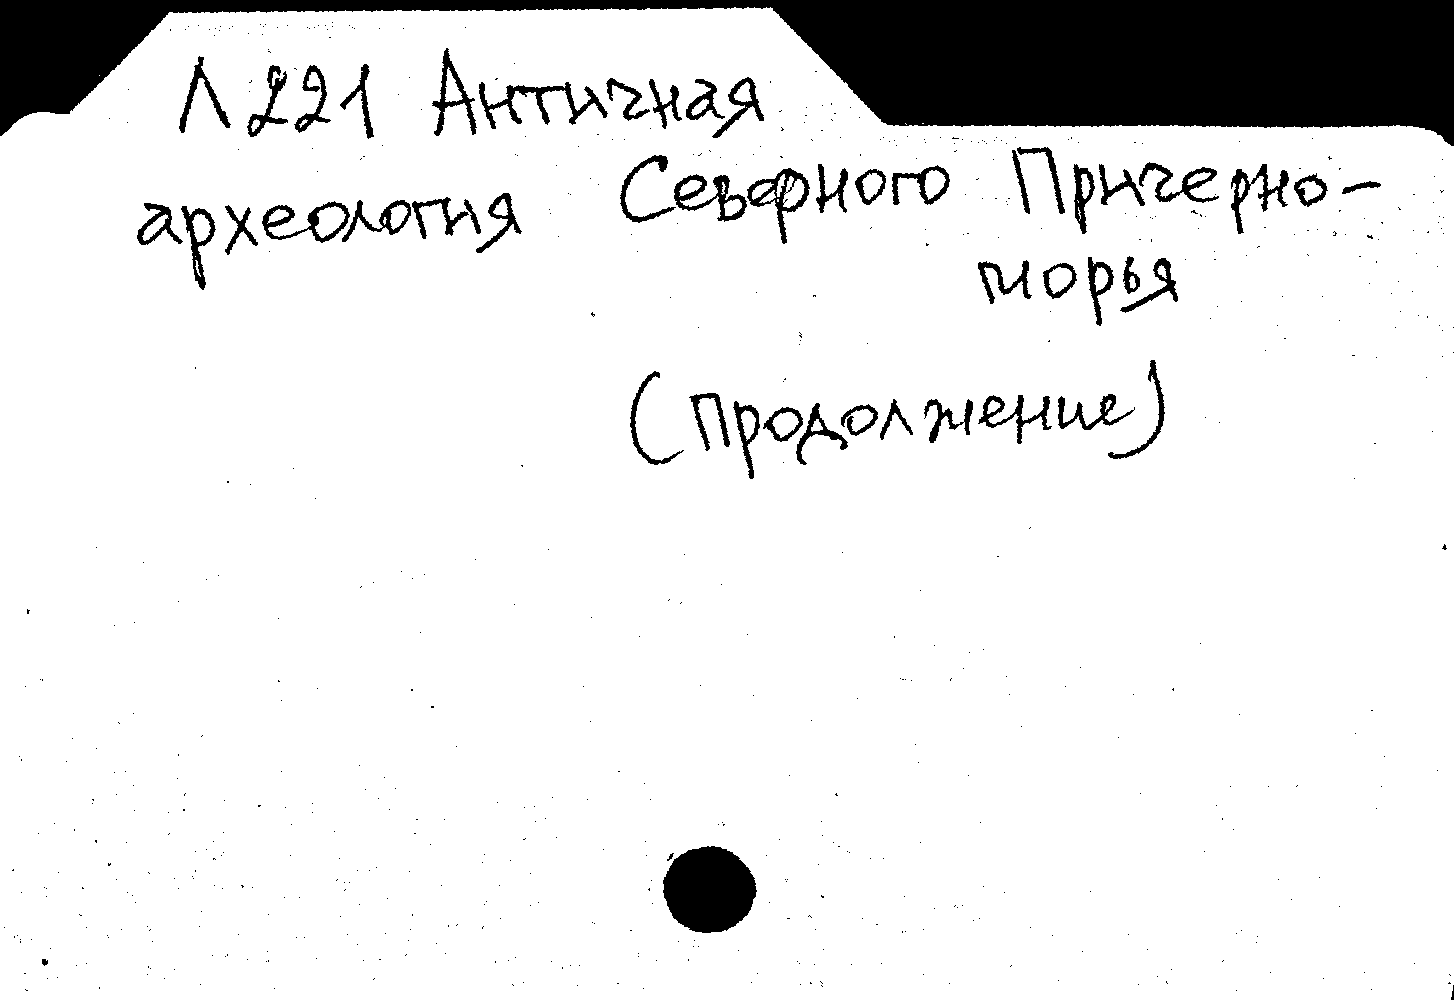 Л221 Античная
археология Северного Причерно-
морья
(продолжение)